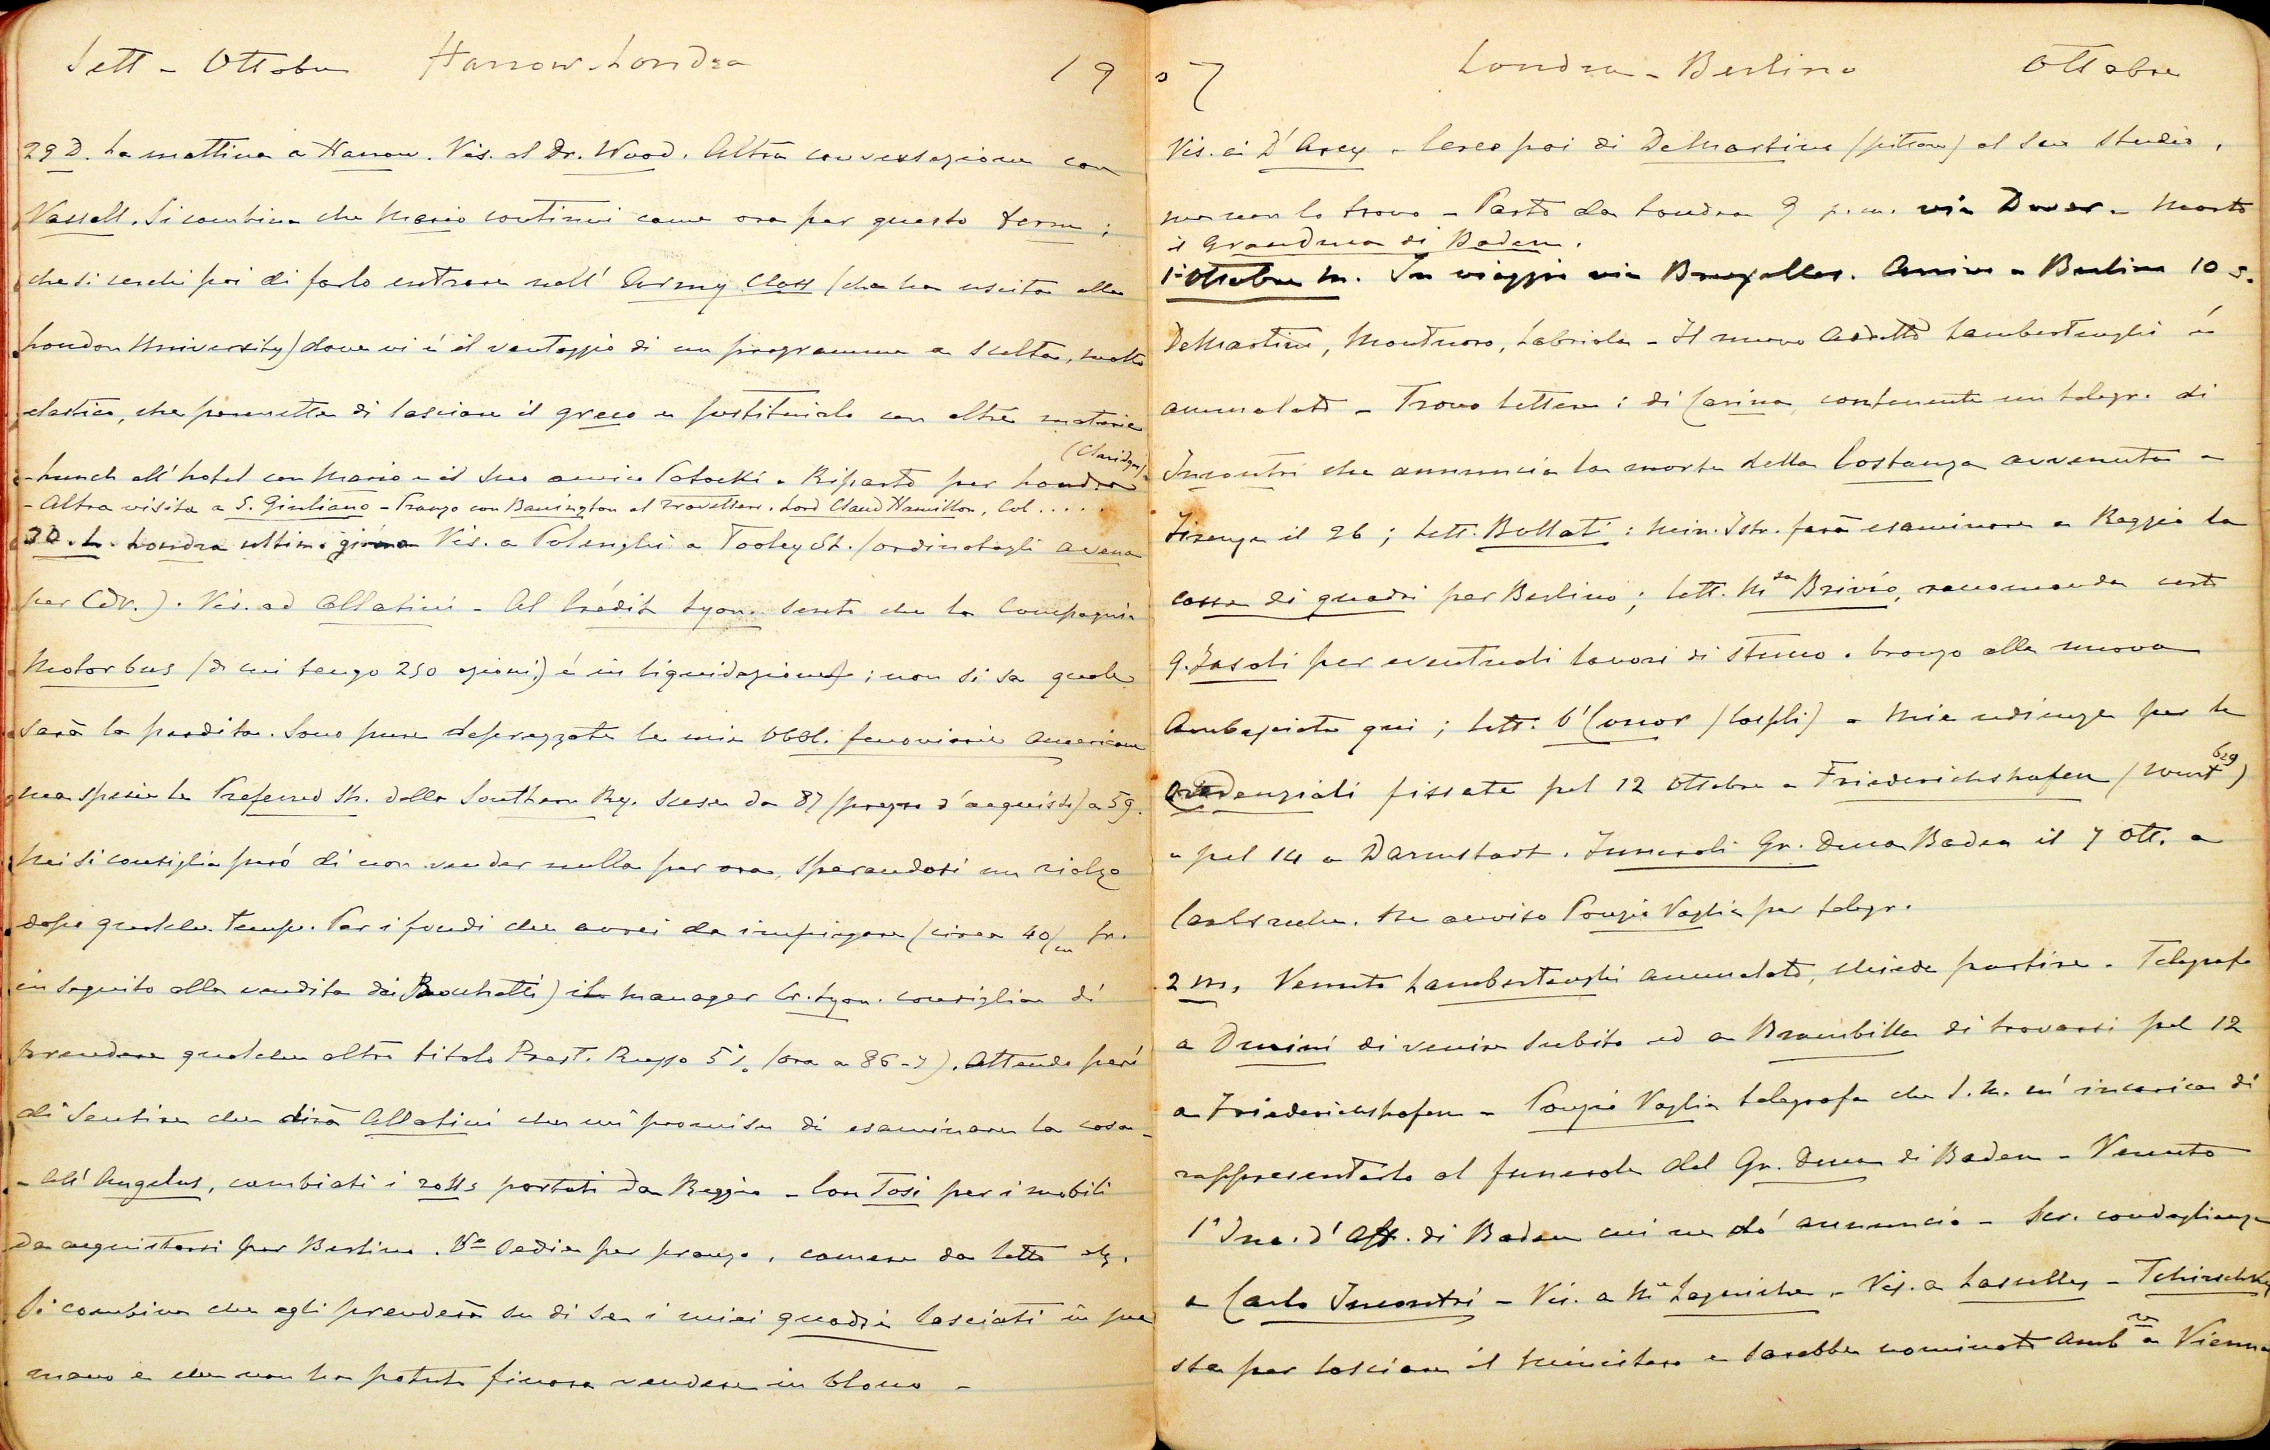 Sett - Ottobre Harrow-Londra 19
29 D. La mattina a Harrow. Vis. al Dr. Wood. Altra conversazione con
Vassall. Si combina che Mario continui come ora per questo term;
che si cerchi poi di farlo entrare nell' Army Class (che ha uscita alla
London University) dove vi è il vantaggio di un programma a scelta, molto
elastico, che permette di lasciare il greco e sostituirlo con altre materie
- Lunch all'hotel con Mario e il suo amico Potocki. Riparto per Londra (Claridges)
- Altra visita a S. Giuliano - Pranzo con Barrington al Travellers. Lord Claud Hamilton, Col.....
30. L. Londra ultimi giorno Vis. a Polenghi a Tooley St. (ordinatogli avena
per Cav.). Vis. ad Allatini - Al Crédit Lyon. sento che la Compagnia
Motor bus (di cui tengo 250 azioni) è in liquidazione; non si sa quale
sarà la perdita. Sono pure deprezzate le mie Obbl. ferroviarie americane
ma specie le Preferred St. della Southern Ry. scese da 87 (prezzo d'acquisto) a 59.
Mi si consiglia però di non vender nulla per ora, sperandosi un rialzo
dopo qualche tempo. Per i fondi che avrei da impiegare (circa 40/m fr.
in seguito alla vendita dei Bocchetti) il manager Cr. Lyon. consiglia di
prendere qualche altro titolo Prest. Russo 5% (ora a 86-7). Attendo però
di sentire che dirà Allatini che mi promise di esaminare la cosa -
- All'Angelus, cambiati i rolls portati da Reggio - Con Tosi per i mobili
da acquistarsi per Berlino. Sedie per pranzo, camere da letto etc.
Si combina che egli prenderà su di se i miei quadri lasciati in sue
mano e che non ha potuto finora vendere in blocco -
07 Londra - Berlino Ottobre
Vis. ai D'Arcy. Cerco poi di DeMartino (pittore) al suo studio,
ma non lo trovo - Parto da Londra 9 p.m. via Dover. Morto
il Granduca di Baden.
1° Ottobre M. In viaggio via Bruxelles. Arrivo a Berlino 10 s.
DeMartino, Montuoro, Labriola - Il nuovo Addetto Lambertenghi è
ammalato - Trovo lettere: di Carina, contenente un telegr. di
Incontri che annuncia la morte della Costanza avvenuta a
Firenze il 26; lett. Bollati: Min. Istr. farà esaminare a Reggio la
cassa di quadri per Berlino; lett. Msa Brivio, racomanda certo
G. Fasoli per eventuali lavori di stucco e bronzo alla nuova
Ambasciata qui; lett. O'Conor (Cospli) - Mie udienze per le
credenziali fissate pel 12 ottobre a Friederichshafen (Wurtbg)
e pel 14 a Darmstadt. Funerali Gr. Duca Baden il 7 Ott. a
Carlsruhe. Ne avviso Ponzio Vaglia per telegr.
2 M. Venuto Lambertenghi ammalato, chiede partire. Telegrafo
a Durini di venire subito ed a Brambilla di trovarsi pel 12
a Friederichshafen - Ponzio Vaglia telegrafa che S. M. m'incarica di
rappresentarlo al funerale del Gr. Duca di Baden - Venuto
l'Inc. d'Aff. di Baden cui ne do' annuncio - Scr. condoglianze
a Carlo Incontri - Vis. a Me Lagenische - Vis. a Lascelles - Tchirschky
sta per lasciare il ministero e sarebbe nominato Ambre a Vienna